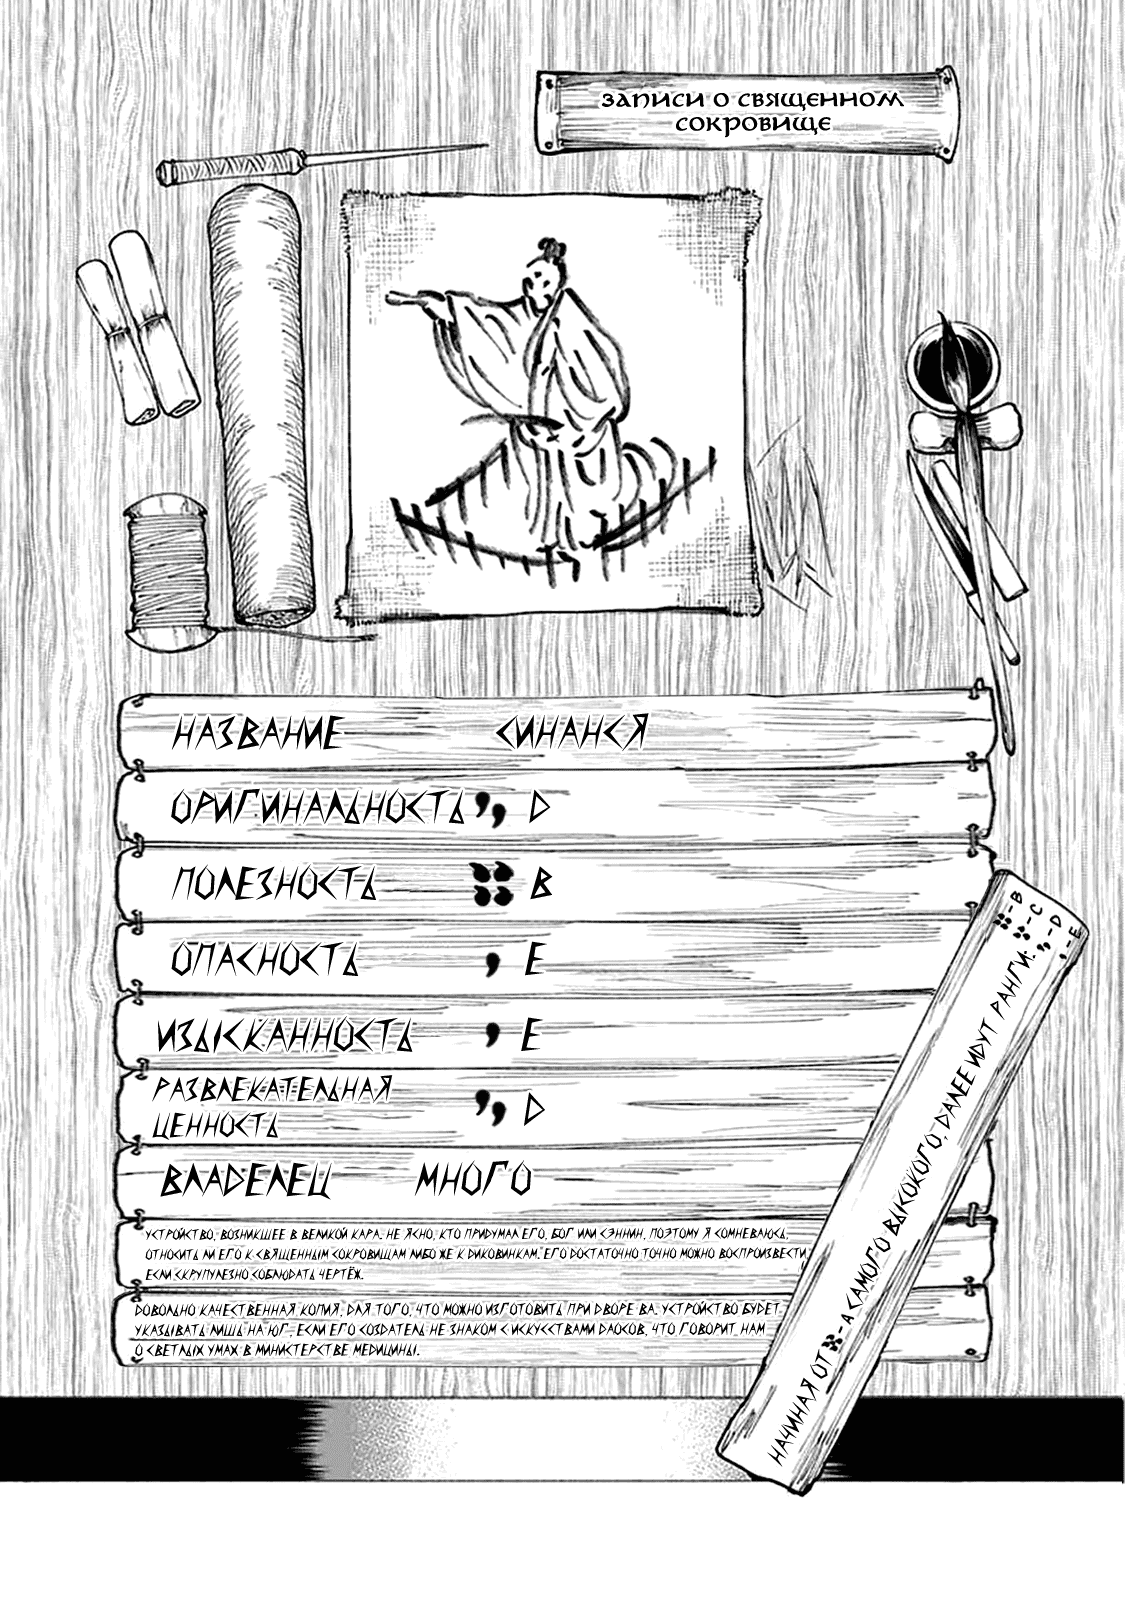 ЗАПИСИ О СВЯЩЕННОМ
СОКРОВИЩЕ
НАЗВАНИЕ СИНАНСЯ
ОРИГИНАЛЬНОСТЬ D
ПОЛЕЗНОСТЬ B
ОПАСНОСТЬ E
ИЗЫСКАННОСТЬ E
РАЗВЛЕКАТЕЛЬНАЯ
ЦЕННОСТЬ D
ВЛАДЕЛЕЦ МНОГО
УСТРОЙСТВО, ВОЗНИКШЕЕ В ВЕЛИКОЙ КАРА. НЕ ЯСНО, КТО ПРИДУМАЛ ЕГО, БОГ ИЛИ СЭННИН, ПОЭТОМУ Я СОМНЕВАЮСЬ,
ОТНОСИТЬ ЛИ ЕГО К СВЯЩЕННЫМ СОКРОВИЩАМ ЛИБО ЖЕ К ДИКОВИНКАМ. ЕГО ДОСТАТОЧНО ТОЧНО МОЖНО ВОСПРОИЗВЕСТИ,
ЕСЛИ СКРУПУЛЕЗНО СОБЛЮДАТЬ ЧЕРТЁЖ.
ДОВОЛЬНО КАЧЕСТВЕННАЯ КОПИЯ ДЛЯ ТОГО, ЧТО МОЖНО ИЗГОТОВИТЬ ПРИ ДВОРЕ ВА. УСТРОЙСТВО БУДЕТ
УКАЗЫВАТЬ ЛИШЬ НА ЮГ, ЕСЛИ ЕГО СОЗДАТЕЛЬ НЕ ЗНАКОМ С ИСКУССТВАМИ ДАОСОВ, ЧТО ГОВОРИТ НАМ
О СВЕТЛЫХ УМАХ В МИНИСТЕРСТВЕ МЕДИЦИНЫ.
НАЧИНАЯ ОТ - А САМОГО ВЫСОКОГО, ДАЛЕЕ ИДУТ РАНГИ:
- B
- C
- D
- E